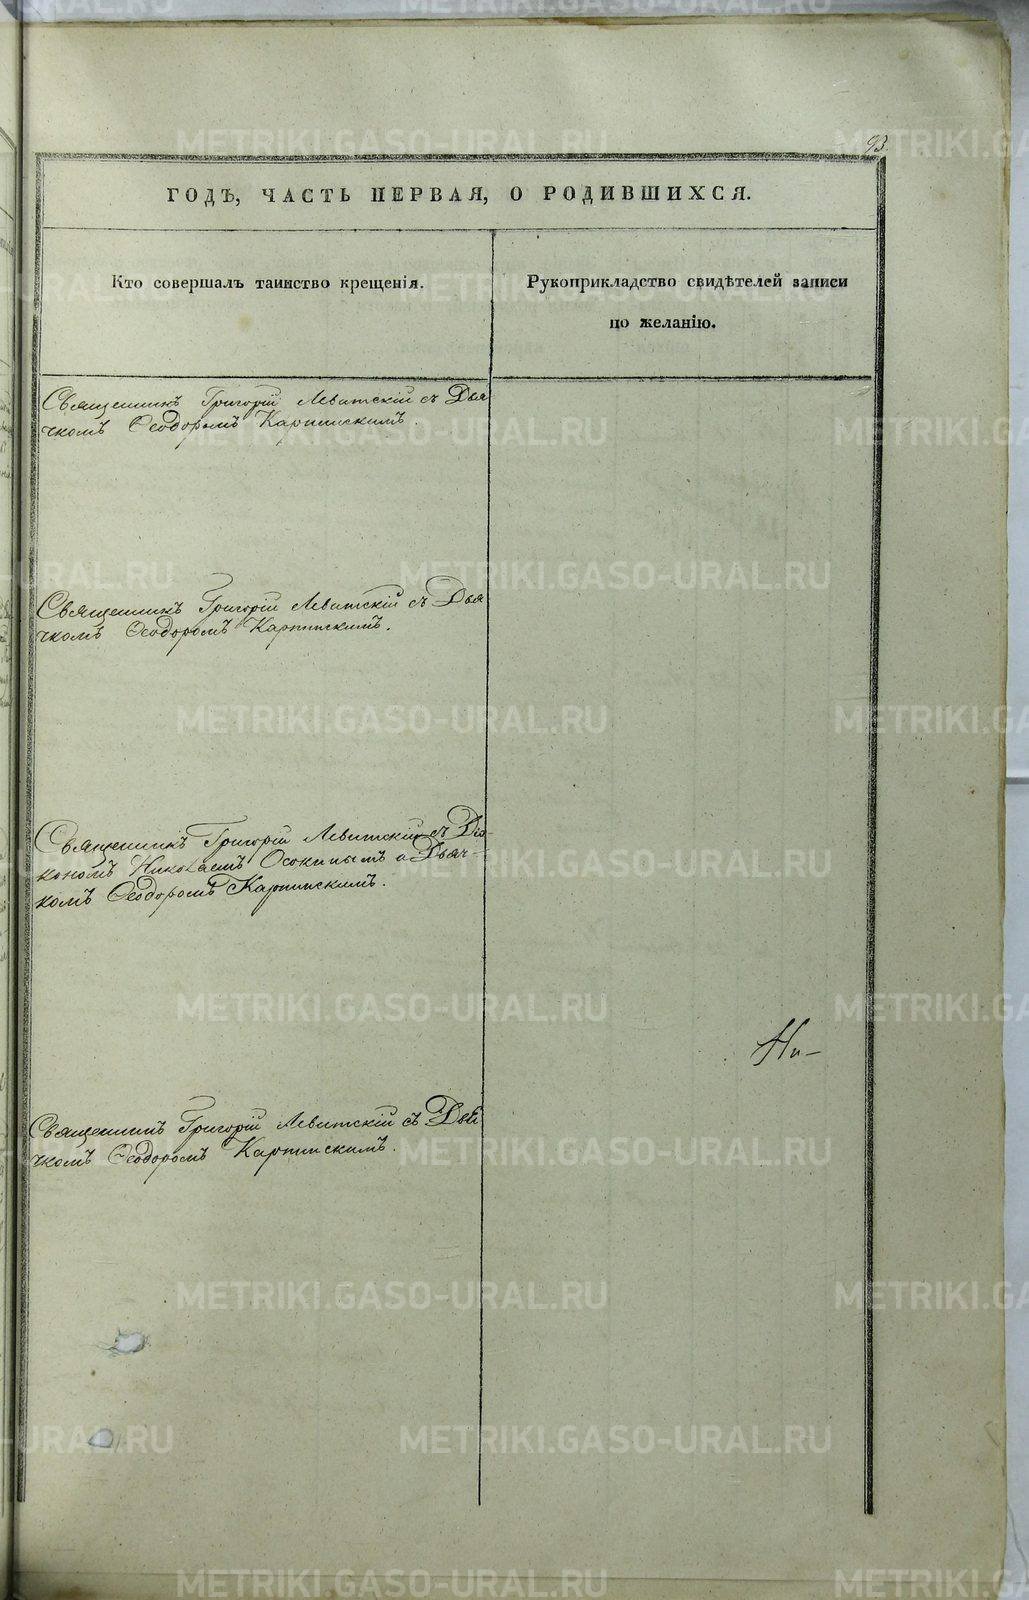 93.
ГОДЪ, ЧАСТЬ ПЕРВАЯ, О РОДИВШИХСЯ.
Кто совершалъ таинство крещенія.
Рукоприкладство свидѣтелей записи
по желанію.
Священникъ Григорій Левитскій съ Дья
чкомъ Ѳеодоромъ Карпинскимъ.
Священникъ Григорій Левитскій съ Дья
чкомъ Ѳеодоромъ Карпинскимъ.
Священникъ Григорій Левитскій съ Діа-
кономъ Николаемъ Осокинымъ и Дьяч-
комъ Ѳеодоромъ Карпинскимъ.
Ни-
Священникъ Григорій Левитскій съ Дья
чкомъ Ѳеодоромъ Карпинскимъ.
METRIKI.GASO-URAL.RU